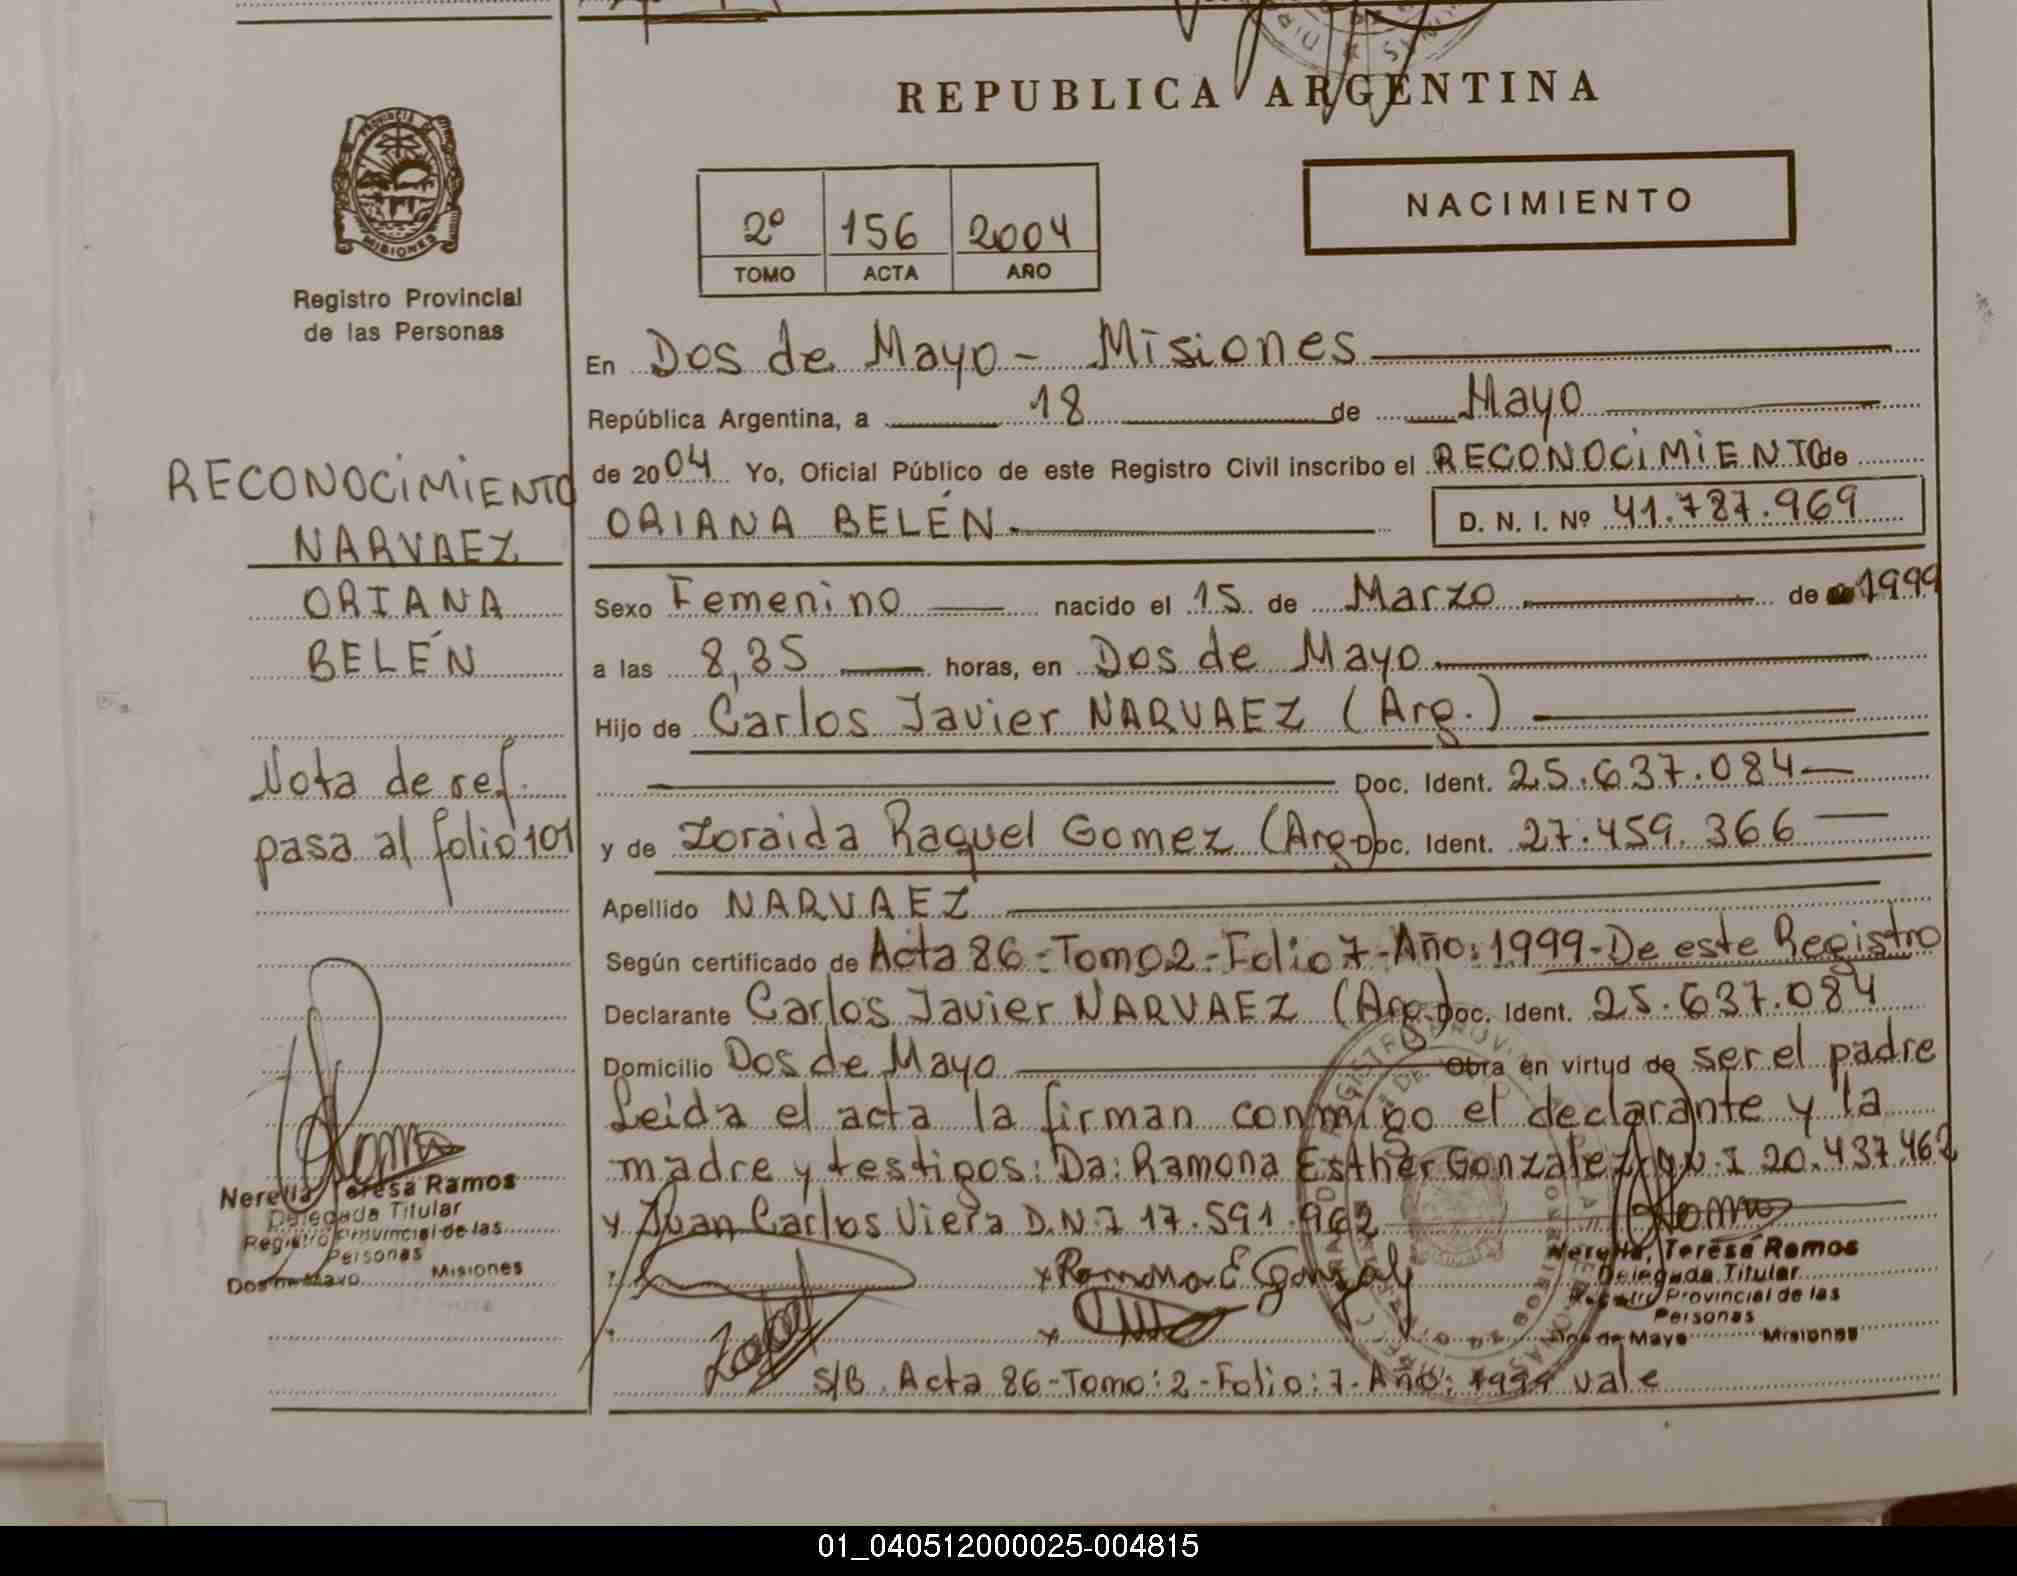 REPUBLICA ARGENTINA
PROVINCIA DE
MISIONES
Registro Provincial
de las Personas
NACIMIENTO
2º 156 2004
TOMO ACTA AÑO
En Dos de Mayo - Misiones
República Argentina, a 18 de Mayo
de 2004 Yo, Oficial Público de este Registro Civil inscribo el RECONOCIMIENTO de
ORIANA BELÉN D. N. I. Nº 41.787.969
Sexo Femenino nacido el 15 de Marzo de 1999
a las 8,35 horas, en Dos de Mayo
Hijo de Carlos Javier NARVAEZ (Arg.)
Doc. Ident. 25.637.084
y de Zoraida Raquel Gomez (Arg.) Doc. Ident. 27.459.366
Apellido NARVAEZ
Según certificado de Acta 86-Tomo 2-Folio 7-Año: 1999-De este Registro
Declarante Carlos Javier NARVAEZ (Arg.) Doc. Ident. 25.637.084
Domicilio Dos de Mayo Obra en virtud de ser el padre
Leida el acta la firman conmigo el declarante y la
madre y testigos: Da: Ramona Esther Gonzalez D.N.I 20.437.462
y Juan Carlos Viera D.N.I 17.591.962
x Ramona E Gonzalez
Nerella Teresa Ramos
Delegada Titular
Registro Provincial de las
Personas
Dos de Mayo Misiones
S/B Acta 86-Tomo: 2-Folio: 7-Año: 1999 vale
RECONOCIMIENTO
NARVAEZ
ORIANA
BELÉN
Nota de ref.
pasa al folio 101
Nerella Teresa Ramos
Delegada Titular
Registro Provincial de las
Personas
Dos de Mayo Misiones
01_040512000025-004815